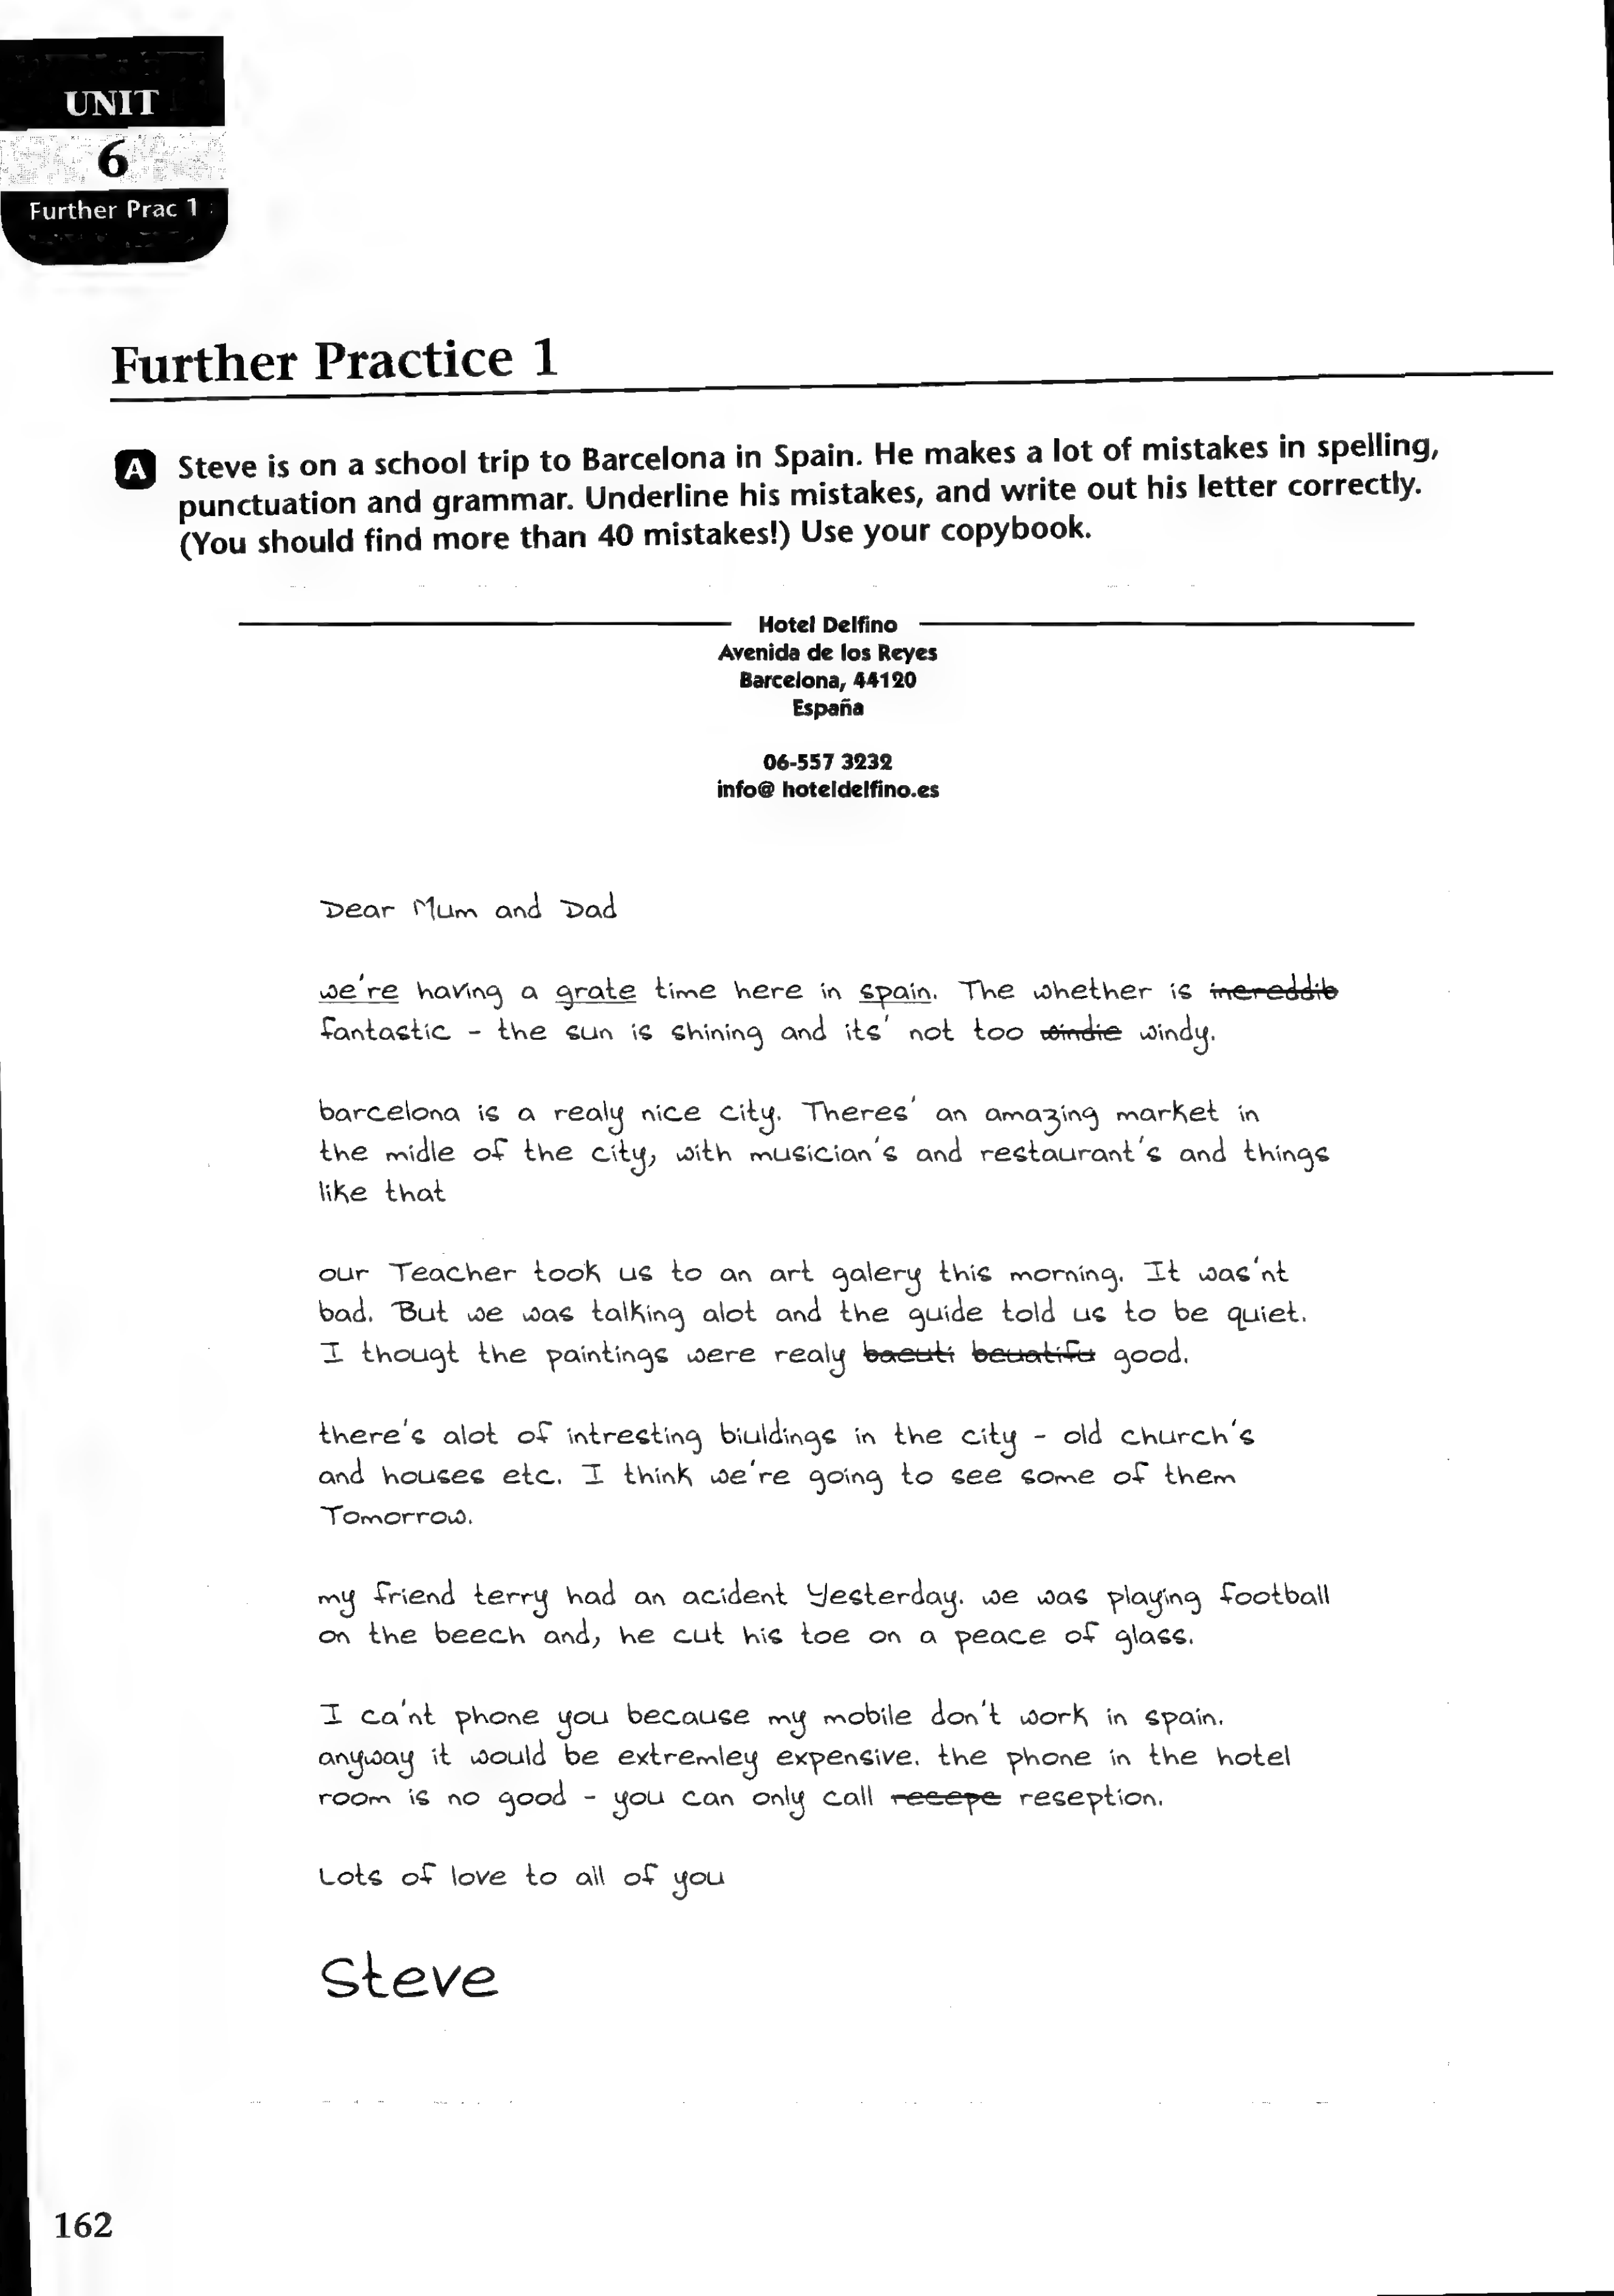 UNIT
6
Further Prac 1
Further Practice 1
A Steve is on a school trip to Barcelona in Spain. He makes a lot of mistakes in spelling,
punctuation and grammar. Underline his mistakes, and write out his letter correctly.
(You should find more than 40 mistakes!) Use your copybook.
Hotel Delfino
Avenida de los Reyes
Barcelona, 44120
España
06-557 3232
info@ hoteldelfino.es
Dear Mum and Dad
we're having a grate time here in spain. The whether is increddib
fantastic - the sun is shining and its' not too windie windy.
barcelona is a realy nice city. Theres' an amazing market in
the midle of the city, with musician's and restaurant's and things
like that
our Teacher took us to an art galery this morning. It was'nt
bad. But we was talking alot and the guide told us to be quiet.
I thougt the paintings were realy baeuti beuatifu good.
there's alot of intresting biuldings in the city - old church's
and houses etc. I think we're going to see some of them
Tomorrow.
my friend terry had an acident Yesterday. we was playing football
on the beech and, he cut his toe on a peace of glass.
I ca'nt phone you because my mobile don't work in spain.
anyway it would be extremley expensive. the phone in the hotel
room is no good - you can only call recepe reseption.
Lots of love to all of you
Steve
162